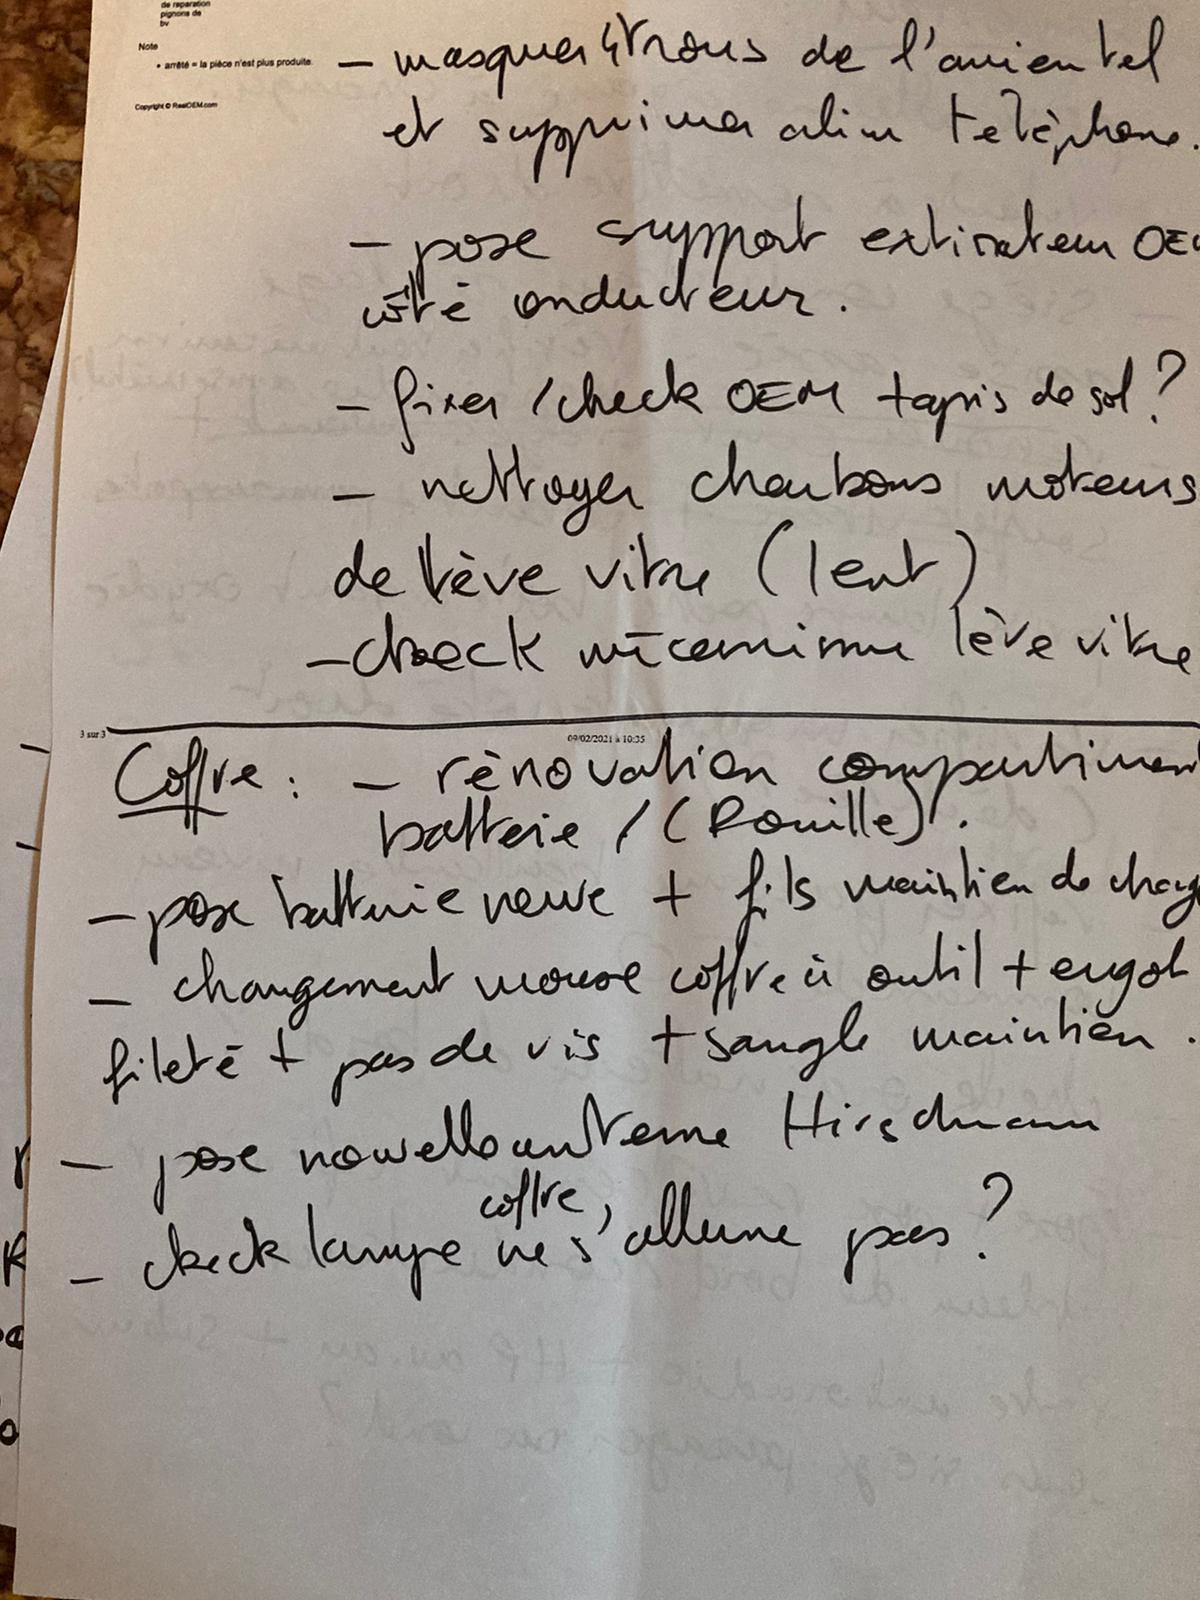 de reparation
pignons de
bv
Note
• arrêté = la pièce n'est plus produite.
Copyright © RealOEM.com
- masquer 4 trous de l'ancien tel
et supprimer alim téléphone.
- pose support extincteur OEM
côté conducteur.
- fixer / check OEM tapis de sol ?
- nettoyer charbons moteurs
de lève vitre (lent)
- check mécanisme lève vitre
3 sur 3
09/02/2021 à 10:35
Coffre : - rénovation compartiment
batterie / (Rouille).
- pose batterie neuve + fils maintien de charge
- changement mousse coffre à outil + ergot
fileté + pas de vis + sangle maintien.
- pose nouvelle antenne Hirschmann
- check lampe coffre, ne s'allume pas ?